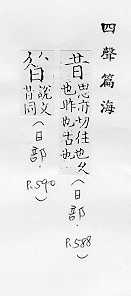 四聲篇海
昔 思亦切往也久
也昨也古也.(日部. P.588)
說文
昔同(日部. P.590)